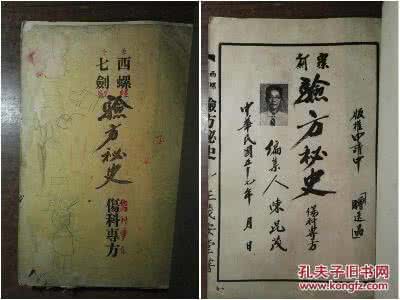 西螺
七劍
驗方秘史
傷科專方
版權申請中
驗方秘史
傷科專方
編集人 陳昆茂
中華民國五十七年 月 日
西螺 驗方秘史
孔夫子旧书网